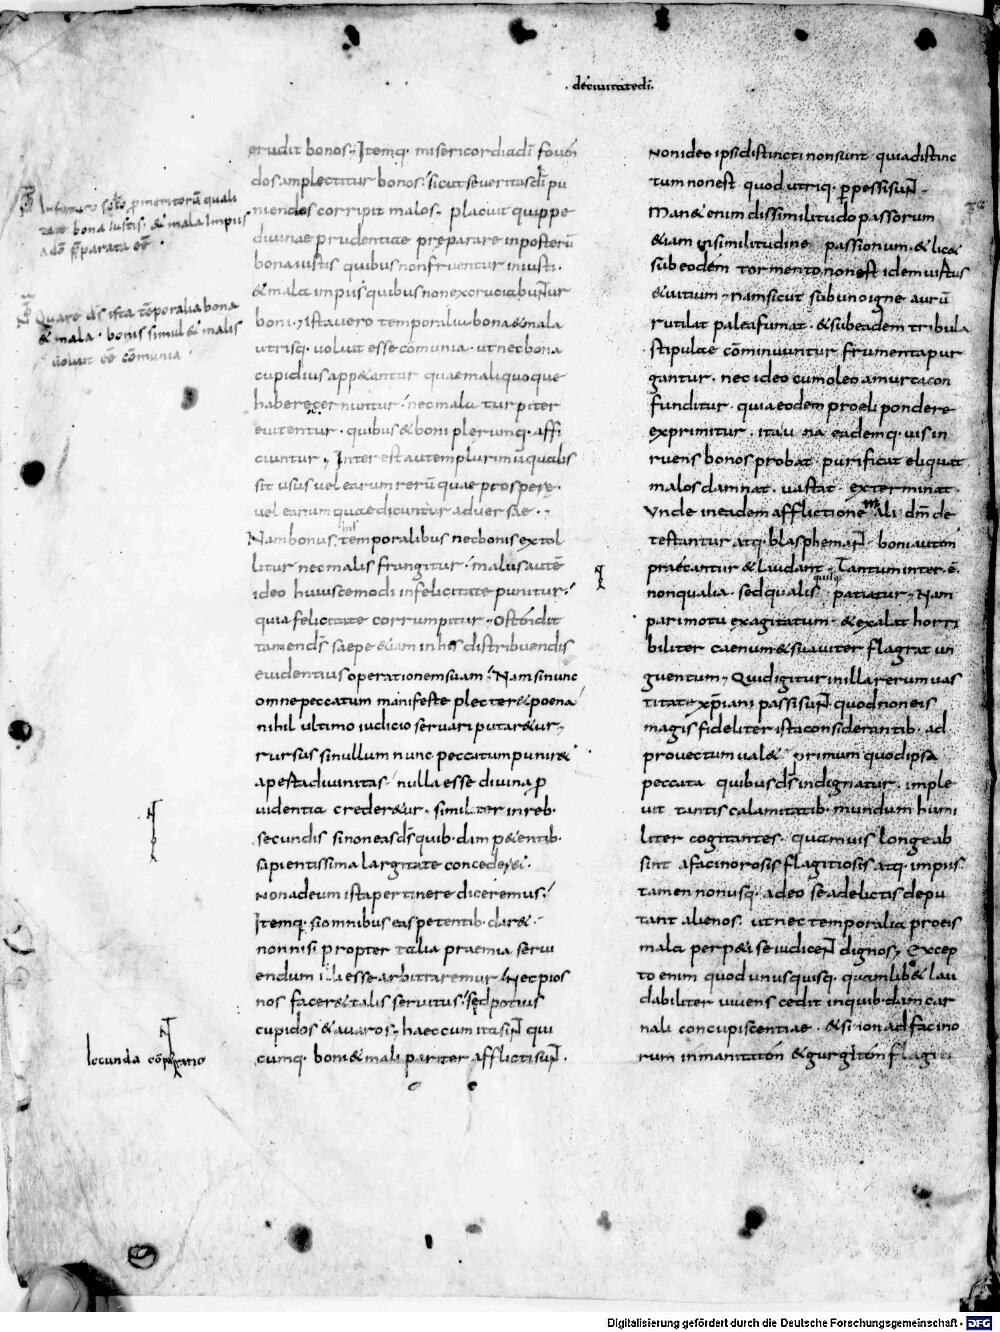 de civitate di.
erudit bonos; Itemq. misericordia di fovend
dos amplectitur bonos. sicut severitas di pu
niendos corripit malos; placuit quippe
divinae prudentiae preparare in posterū
bona iustis quibus non fruentur iniusti.
& mala impiis quibus non excruciabuntur
boni; Ista vero temporalia bona & mala
utrisq. voluit esse cōmunia. ut nec bona
cupidius app&antur quae mali quoque
habere cernuntur. nec mala turpiter
evitentur. quibus & boni plerumq. affi
ciuntur; Interest autem plurimū qualis
sit usus vel earum rerū quae prosperę.
vel earum quae dicuntur adversae.;
Nam bonus temporalibus nec bonis extol
litur nec malis frangitur. malus autē
ideo huiuscemodi infelicitate punitur.
quia felicitate corrumpitur; Ostendit
tamen ds saepe &iam in his distribuendis
evidentius operationem suam. Nam si nunc
omne peccatum manifeste plecter& poena
nihil ultimo iudicio servari putar&ur;
rursus si nullum nunc peccatum punir&
aperta divinitas. nulla esse divina p
videntia creder&ur. similiter in reb.
secundis si non eas ds quib.dam p&entib.
sapientissima largitate concederet.
Non ad eum ista pertinere diceremus.
Itemq. si omnibus eas petentib. dar&.
non nisi propter talia praemia servi
endum illi esse arbitraremur. Nec pios
nos facer& talis servitus. sed potius
cupidos & avaros; haec cum ita sint qui
cumq. boni & mali pariter afflicti sunt.
Non ideo ipsi distincti non sunt quia distinc
tum non est quod utriq. ppessi sunt.
Man& enim dissimilitudo passorum
&iam in similitudine passionum. & lic&
sub eodem tormento non est idem virtus
& vitium; nam sicut sub uno igne aurū
rutilat palea fumat. & sub eadem tribula
stipulae cōminuuntur frumenta pur
gantur. nec ideo cum oleo amurca con
funditur. quia eodem proeli pondere
exprimitur. ita una eademq. vis in
ruens bonos probat. purificat eliquat
malos damnat. vastat. exterminat.
Unde in eadem afflictione mali dm de
testantur atq. blasphemant. boni autem
praecantur & laudant; Tantum inter. ē.
non qualia. sed qualis quisq. patiatur; Nam
pari motu exagitatum. & exalat horri
biliter caenum & suaviter flagrat un
guentum; Quid igitur in illa rerum vas
titate xpiani passi sunt. quod non eis
magis fideliter ista considerantib. ad
provectum val&. primum quod ipsa
peccata quibus ds indignatur. imple
vit tantis calamitatib. mundum humi
liter cogitantes. quamvis longe ab
sint a facinorosis flagitiosis atq. impiis
tamen non usq. adeo se a delictis depu
tant alienos. ut nec temporalia pro eis
mala perp&i se iudicent dignos; Excep
to enim quod unusquisq. quamlib& lau
dabiliter vivens cedit in quib.dam car
nali concupiscentiae. & si non ad facino
rum inmanitatem & gurgitem flagiti
rata bona iustis. & mala Impiis
Quare ds ista tēporalia bona
& mala. bonis simul & malis
voluit ēē cōmunia
Iocunda cōparatio
Digitalisierung gefördert durch die Deutsche Forschungsgemeinschaft - DFG